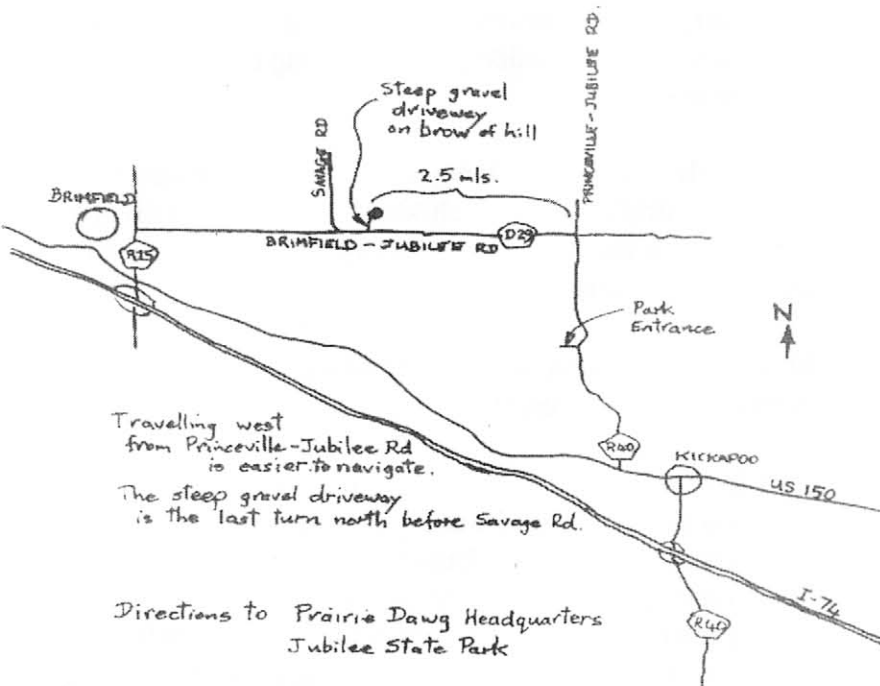 PRINCEVILLE-JUBILEE RD.
Steep gravel
driveway
on brow of hill
SAVAGE RD
2.5 mls.
BRIMFIELD
BRIMFIELD-JUBILEE RD
D29
R25
Park
Entrance
N
Travelling west
from Princeville-Jubilee Rd
is easier to navigate.
The steep gravel driveway
is the last turn north before Savage Rd.
R40
KICKAPOO
US 150
I-74
R40
Directions to Prairie Dawg Headquarters
Jubilee State Park